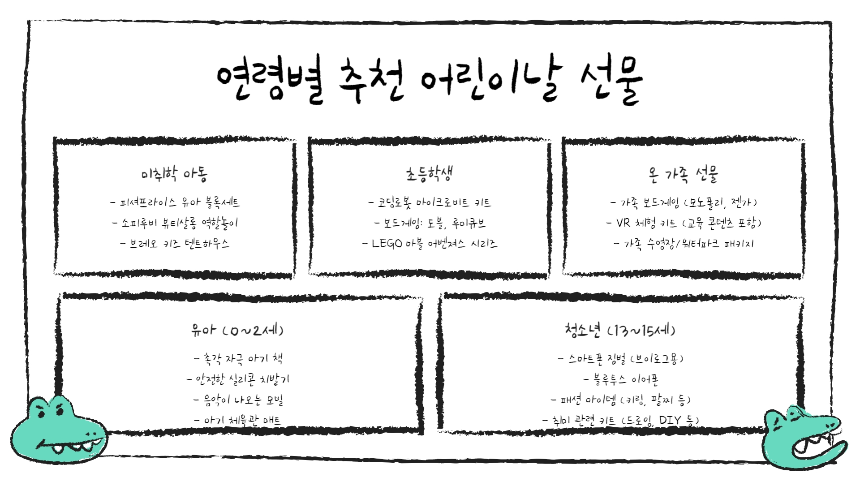 연령별 추천 어린이날 선물
미취학 아동
- 피셔프라이스 유아 블록세트
- 소피루비 뷰티살롱 역할놀이
- 브레오 키즈 텐트하우스
초등학생
- 코딩로봇 마이크로비트 키트
- 보드게임: 도블, 루미큐브
- LEGO 마블 어벤져스 시리즈
온 가족 선물
- 가족 보드게임 (모노폴리, 젠가)
- VR 체험 키트 (교육 콘텐츠 포함)
- 가족 수영장/워터파크 패키지
유아 (0~2세)
- 촉각 자극 아기 책
- 안전한 실리콘 치발기
- 음악이 나오는 모빌
- 아기 체육관 매트
청소년 (13~15세)
- 스마트폰 짐벌 (브이로그용)
- 블루투스 이어폰
- 패션 아이템 (키링, 팔찌 등)
- 취미 관련 키트 (드로잉, DIY 등)